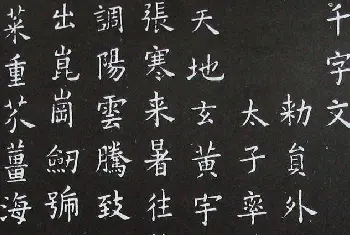 千字文
勅員外
太子率
天地玄黃宇
張寒来暑往
調陽雲騰致
出崑崗劒號
菜重芥薑海